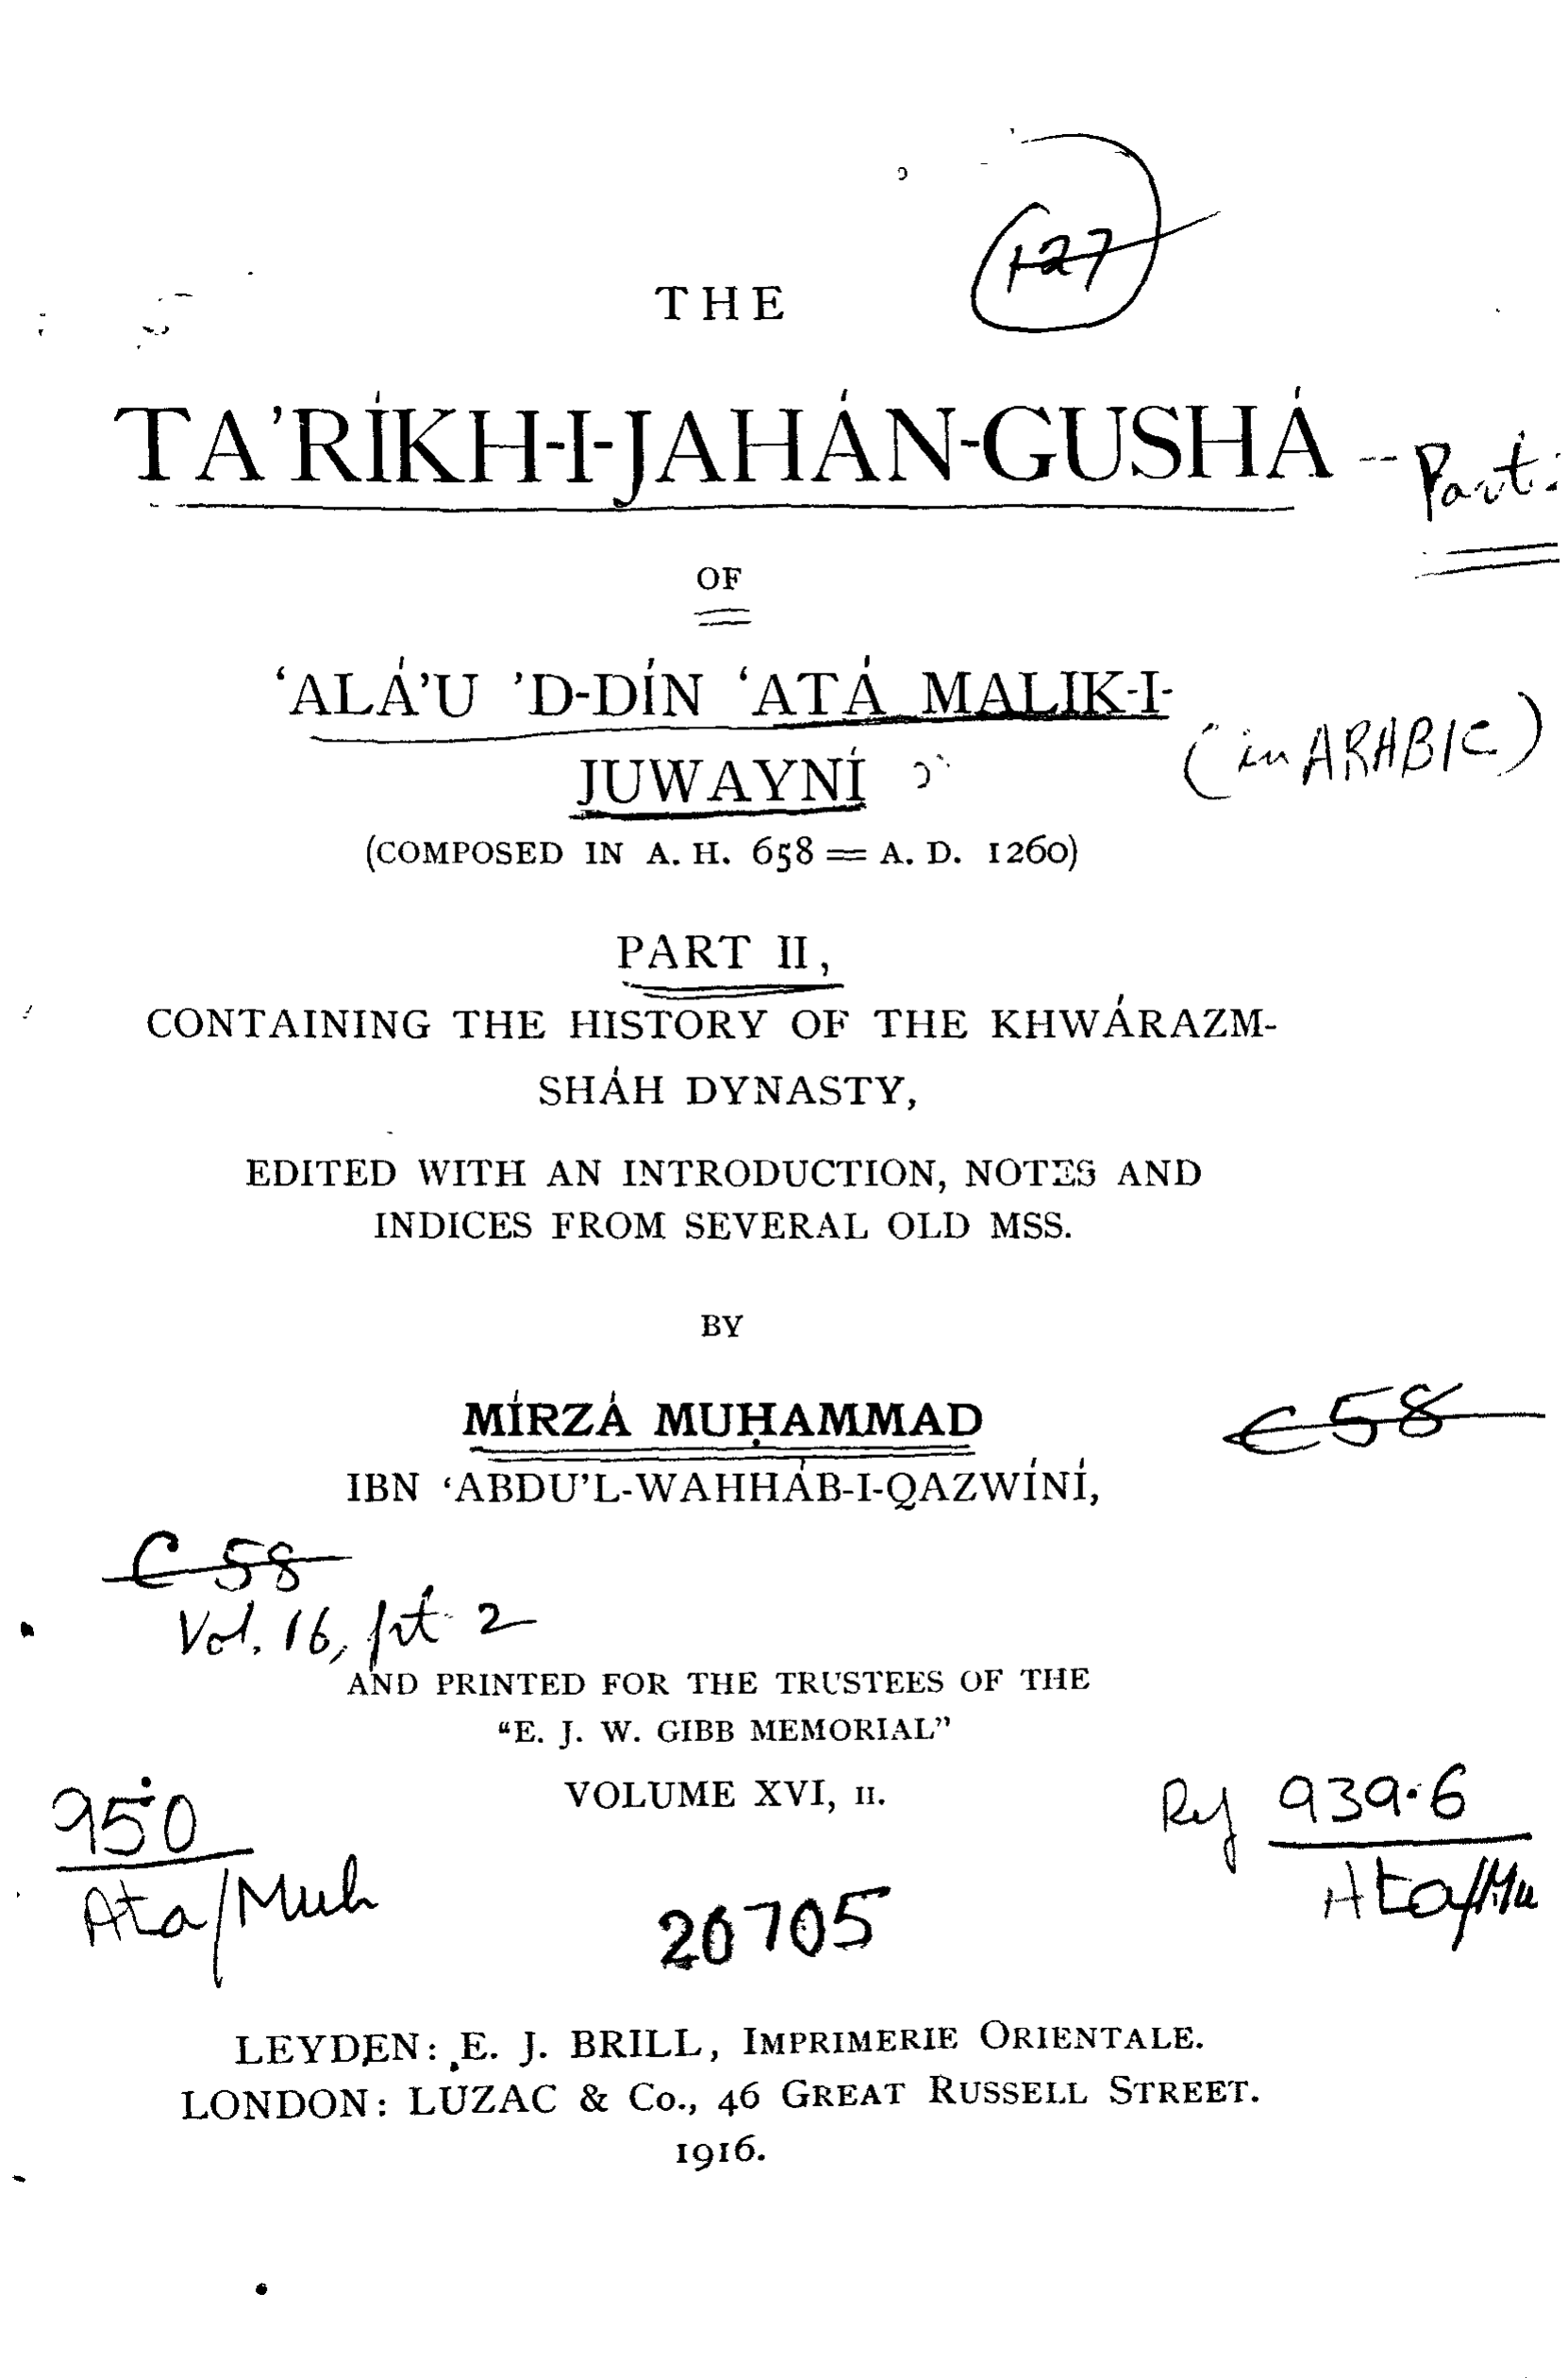 127
THE
TA’RÍKH-I-JAHÁN-GUSHÁ -- Part.
OF
‘ALÁ’U ’D-DÍN ‘ATÁ MALIK-I-
JUWAYNÍ (in ARABIC)
(COMPOSED IN A. H. 658 = A. D. 1260)
PART II,
CONTAINING THE HISTORY OF THE KHWÁRAZM-
SHÁH DYNASTY,
EDITED WITH AN INTRODUCTION, NOTES AND
INDICES FROM SEVERAL OLD MSS.
BY
MÍRZÁ MUḤAMMAD
C 58
IBN ‘ABDU’L-WAHHÁB-I-QAZWÍNÍ,
C 58
Vol. 16, pt 2
AND PRINTED FOR THE TRUSTEES OF THE
“E. J. W. GIBB MEMORIAL”
VOLUME XVI, II.
950
Ata/Muh
939.6
Ata/Mu
20705
LEYDEN: E. J. BRILL, IMPRIMERIE ORIENTALE.
LONDON: LUZAC & Co., 46 GREAT RUSSELL STREET.
1916.